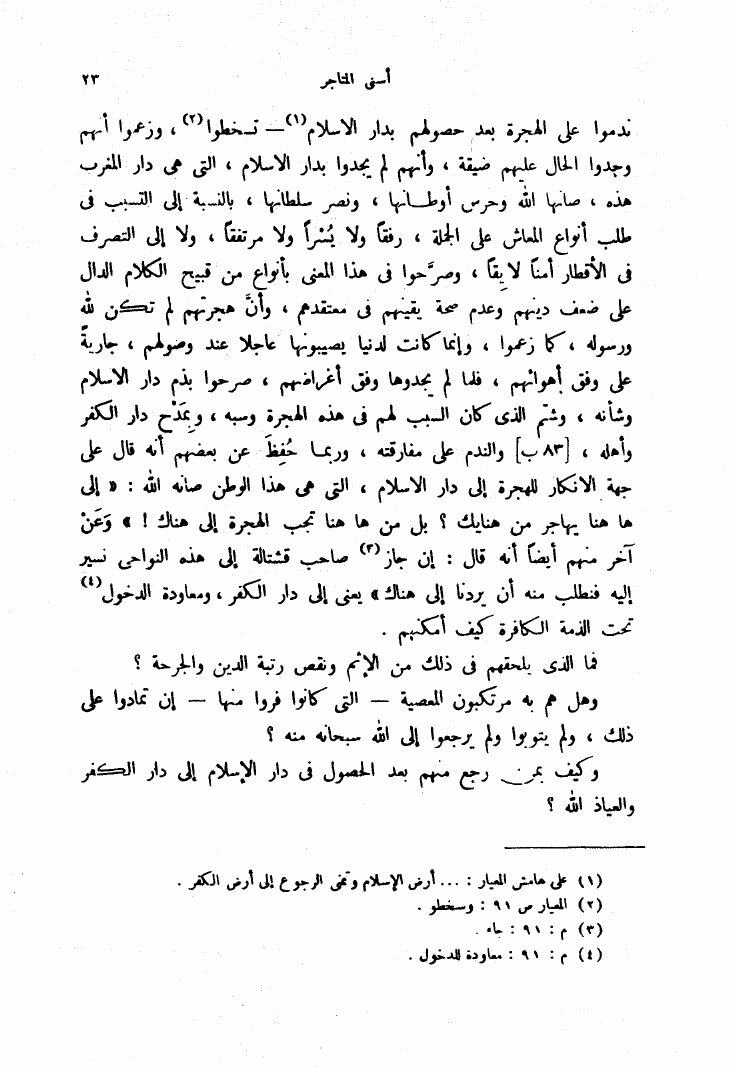 أسنى المتاجر ٢٣
ندموا على الهجرة بعد حصولهم بدار الاسلام(١) — تسخطوا(٢) ، وزعموا أنهم
وجدوا الحال عليهم ضيقة ، وأنهم لم يجدوا بدار الاسلام ، التى هى دار المغرب
هذه ، صانها الله وحرس أوطانها ، ونصر سلطانها ، بالنسبة إلى التسبب فى
طلب أنواع المعاش على الجملة ، رفقاً ولا يُسْراً ولا مرتفقاً ، ولا إلى التصرف
فى الأقطار أمناً لايقاً ، وصرَّحوا فى هذا المعنى بأنواع من قبيح الكلام الدال
على ضعف دينهم وعدم صحة يقينهم فى معتقدهم ، وأنَّ هجرتهم لم تكن لله
ورسوله ، كما زعموا ، وإنما كانت لدنيا يصيبونها عاجلا عند وصولهم ، جاريةً
على وفق أهوائهم ، فلما لم يجدوها وفق أغراضهم ، صرحوا بذم دار الاسلام
وشأنه ، وشتم الذى كان السبب لهم فى هذه الهجرة وسبه ، وبمَدْح دار الكفر
وأهله ، [٨٣ ب] والندم على مفارقته ، وربما حُفِظَ عن بعضهم أنه قال على
جهة الانكار للهجرة إلى دار الاسلام ، التى هى هذا الوطن صانه الله : « إلى
ها هنا يهاجر من هنايك ؟ بل من ها هنا تجب الهجرة إلى هناك ! » وَعَنْ
آخر منهم أيضاً أنه قال : إن جاز(٣) صاحب قشتالة إلى هذه النواحى نسير
إليه فنطلب منه أن يردنا إلى هناك » يعنى إلى دار الكفر ، ومعاودة الدخول(٤)
تحت الذمة الكافرة كيف أمكنهم .
فما الذى يلحقهم فى ذلك من الإثم ونقص رتبة الدين والجرحة ؟
وهل هم به مرتكبون المعصية — التى كانوا فروا منها — إن تمادوا على
ذلك ، ولم يتوبوا ولم يرجعوا إلى الله سبحانه منه ؟
وكيف بمن رجع منهم بعد الحصول فى دار الإسلام إلى دار الكفر
والعياذ الله ؟
(١) على هامش المعيار : ... أرض الإسلام وتمنى الرجوع إلى أرض الكفر .
(٢) المعيار ص ٩١ : وسخطو .
(٣) م : ٩١ : جاء .
(٤) م : ٩١ : معاودة للدخول .